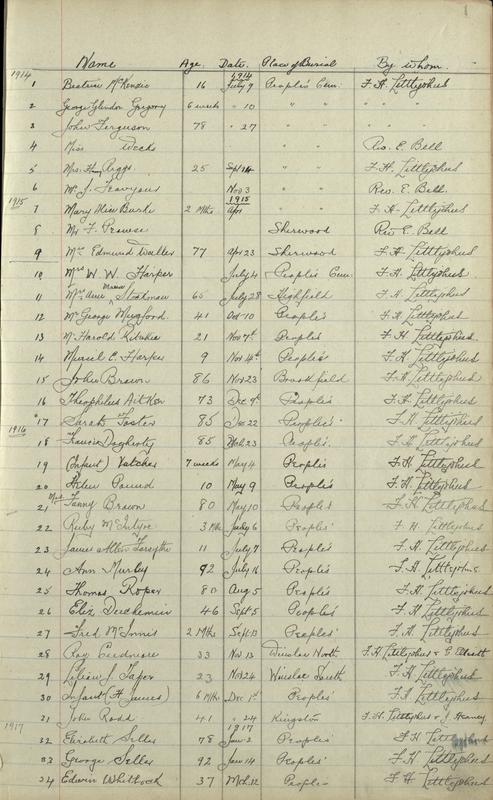 1
Name Age. Date. Place of Burial By whom.
1914 1914
1 Beatrice McKenzie 16 July 9 People's Cem. F. H. Littlejohns
2 George Glendon Gregory 6 weeks " 10 " " " " "
3 John Ferguson 78 " 27 " " " " "
4 Miss Weeks " " Rev. E. Bell
5 Mrs. Riggs 25 Sept 14 " " F. H. Littlejohns
6 Mr J. Nov 3 " " Rev. E. Bell
1915 1915
7 Mary Burke 2 Mths Apr " " F. H. Littlejohns
8 Mr F. Prowse Sherwood Rev E. Bell
9 Mrs Edmund Waller 77 Apr 23 Sherwood F. H. Littlejohns
10 Mrs W. W. Harper July 4 People's Cem. F. H. Littlejohns
11 Mrs Stedman 65 July 28 Highfield F. H. Littlejohns
12 Mr George Mugford 41 Oct 10 People's F. H. Littlejohns
13 Mr Harold 21 Nov 7th People's F. H. Littlejohns
14 Muriel C. Harper 9 Nov 14th People's F. H. Littlejohns
15 John Brown 86 Nov 23 F. H. Littlejohns
16 Theophilus Aitken 73 Dec 9th People's F. H. Littlejohns
17 Sarah Foster 85 Dec 22 People's F. H. Littlejohns
1916
18 85 Feb 23 People's F. H. Littlejohns
19 (Infant) Vatcher 7 weeks May 4 People's F. H. Littlejohns
20 Helen 10 May 9 People's F. H. Littlejohns
21 Mrs Fanny Brown 80 May 10 People's F. H. Littlejohns
22 Ruby McIntyre 3 Mths July 6 People's F. H. Littlejohns
23 James Forsythe 11 July 7 People's F. H. Littlejohns
24 Ann 92 July 16 People's F. H. Littlejohns
25 Thomas Roper 80 Aug 5 People's F. H. Littlejohns
26 Eliz. Duchemin 46 Sept 5 People's F. H. Littlejohns
27 Fred McInnis 2 Mths Sept 13 People's F. H. Littlejohns
28 Roy 33 Nov 13 Winsloe North F. H. Littlejohns &
29 Lilian J. 23 Nov 24 Winsloe South F. H. Littlejohns
30 Infant (H James) 6 Mths Dec 1st People's F. H. Littlejohns
31 John Rodd 41 " 24 Kingston F. H. Littlejohns & J. Heaney
1917 1917
32 Elizabeth Seller 78 Jan 2 People's F. H.
33 George Seller 92 Jan 14 People's F. H. Littlejohns
34 Edwin Whitlock 37 Mch 12 People's F. H. Littlejohns